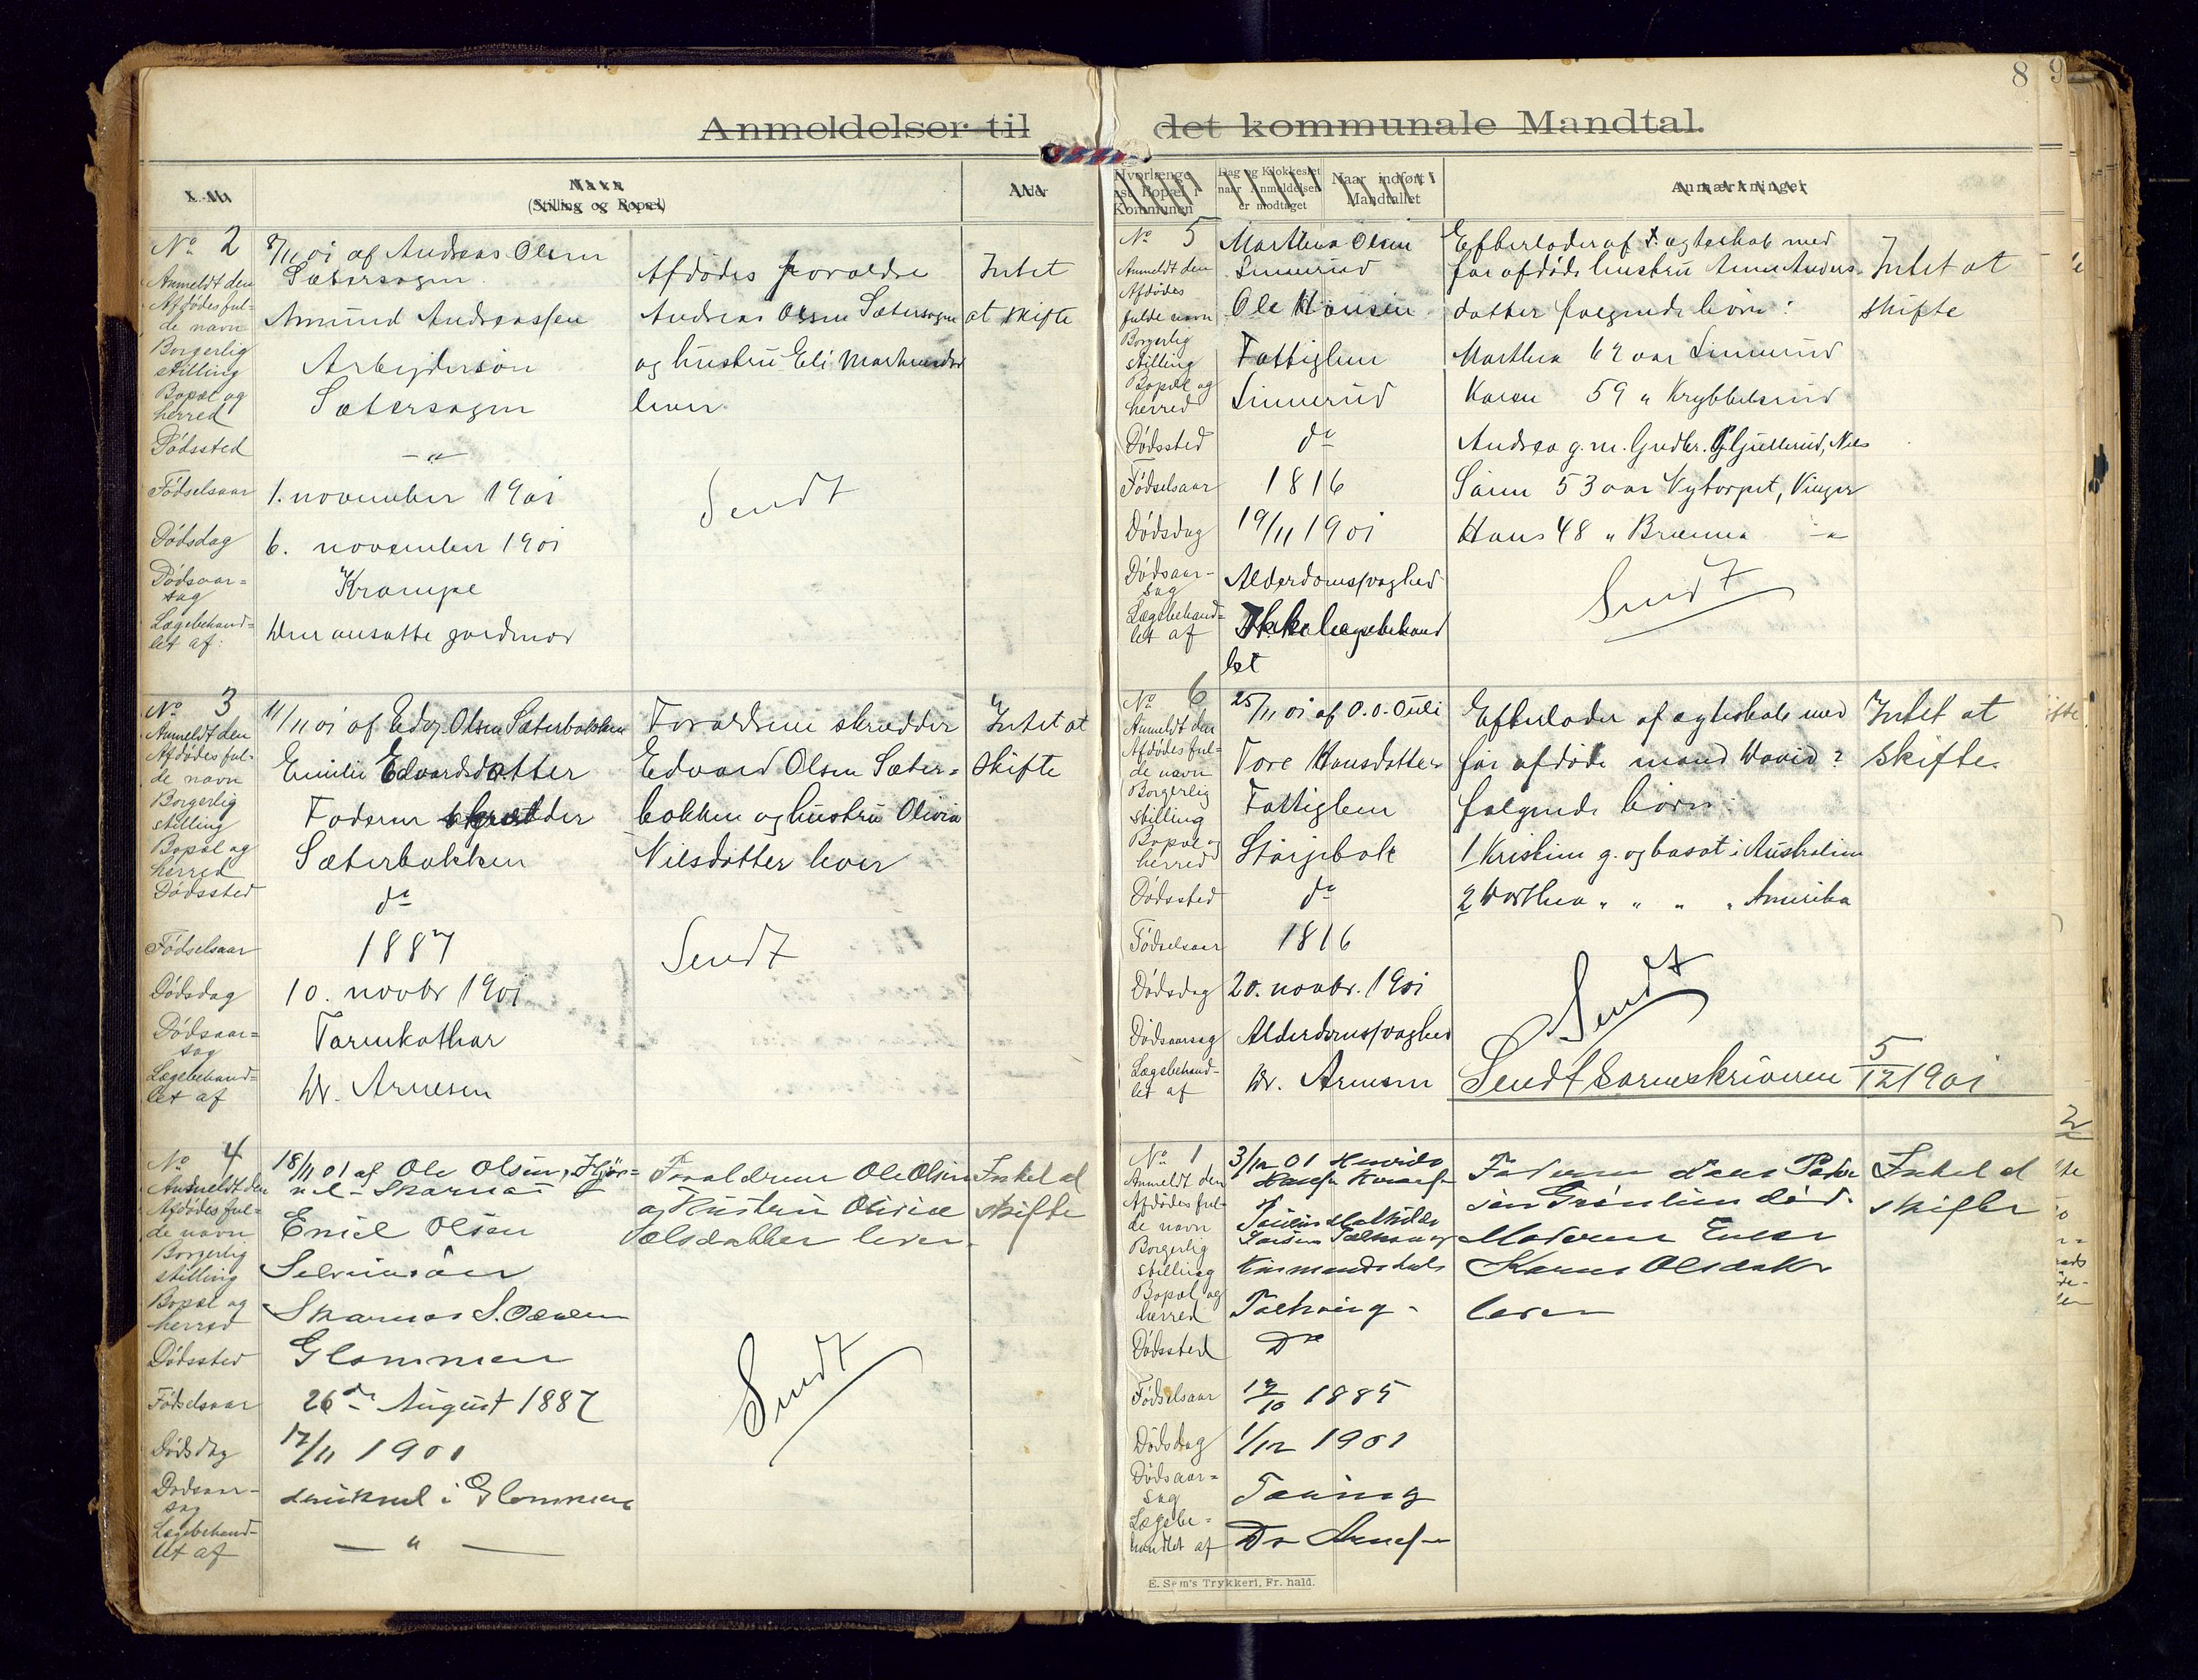 8
9
Anmeldelser til det kommunale Mandtal.
L. No.
Navn
(Stilling og Bopæl)
Hvorlænge
Bopæl i
Kommunen
Dag og Klokkeslet
naar Anmeldelsen
er modtaget
Naar indført i
Mandtallet
Anmærkninger
No 2
8/11 01 af Andreas Olsen
Sætersagen
Anmeldt den
Afdødes ful-
de navn
Amund Andreassen
Borgerlig
stilling
Arbejdersøn
Bopæl og
herred
Sætersagen
Dødssted
— " —
Fødselsaar
1. november 1901
Dødsdag
6. november 1901
Dødsaar=
sag
Krampe
Lægebehand=
let af:
Den ansatte jordmor
Afdødes forældre
Andreas Olsen Sætersagen
og hustru Eli
lever
Sendt
Intet
at skifte
No 3
11/11 01 af Edv. Olsen Sæterbakken
Anmeldt den
Afdødes ful-
de navn
Emilie Edvardsdatter
Borgerlig
stilling
Faderen skrædder
Bopæl og
herred
Sæterbakken
Dødssted
do
Fødselsaar
1887
Dødsdag
10. novbr 1901
Dødsaar=
sag
Tarmkathar
Lægebehand=
let af
Dr. Arnesen
Forældrene skrædder
Edvard Olsen Sæter=
bakken og hustru Olivia
Nilsdatter lever
Sendt
Intet at
skifte
No 4
18/11 01 af Ole Olsen,
Skarnæs
Anmeldt den
Afdødes ful=
de navn
Emil Olsen
Borgerlig
stilling
Bopæl og
herred
Skarnæs S. Odalen
Dødssted
Glommen
Fødselsaar
26de August 1887
Dødsdag
17/11 1901
Dødsaar-
sag
druknet i Glommen
Lægebehand-
let af
— " —
Forældrene Ole Olsen
og Hustru Olivia
lever.
Sendt
Intet at
skifte
No 5
Marthea Olsen
Anmeldt den
Linnerud
Afdødes
fulde navn
Ole Hansen
Borgerlig
stilling
Fattiglem
Bopæl og
herred
Linnerud
Dødssted
do
Fødselsaar
1816
Dødsdag
19/11 1901
Dødsaar-
sag
Alderdomssvaghed
Lægebehand=
let af
Ikke lægebehand
let
Efterlader af ægteskab med
før afdøde hustru Anne Anders-
datter følgende børn:
Marthea 62 aar Linnerud
Karen 59 "
Andrea g. m. Gudbr.
53 aar Nytorpet, Vinger
Hans 48 " Brænna — " —
Sendt
Intet at
skifte
No 6
25/11 01 af O. O. Ouli
Anmeldt den
Afdødes ful=
de navn
Tore Hansdatter
Borgerlig
stilling
Fattiglem
Bopæl og
herred
Dødssted
do
Fødselsaar
1816
Dødsdag
20. novbr. 1901
Dødsaarsag
Alderdomssvaghed
Lægebehand-
let af
Dr. Arnesen
Efterlader af ægteskab med
før afdøde mand David ?
følgende børn:
1 Kristine g. og bosat i Australien
2 Dorthea " " " " Amerika
Sendt
Sendt Sorenskriveren 5/12 1901
Intet at
skifte.
No 1
3/12 01
Anmeldt den
Afdødes ful-
de navn
Borgerlig
stilling
Bopæl og
herred
Dødssted
Do
Fødselsaar
1885
Dødsdag
1/12 1901
Dødsaar=
sag
Tæring
Lægebe=
handlet af
Dr Arnesen
Faderen Peder
sen død.
Moderen
Karen Olsdatter
lever
Intet at
skifte
E. Sem's Trykkeri, Fr. hald.